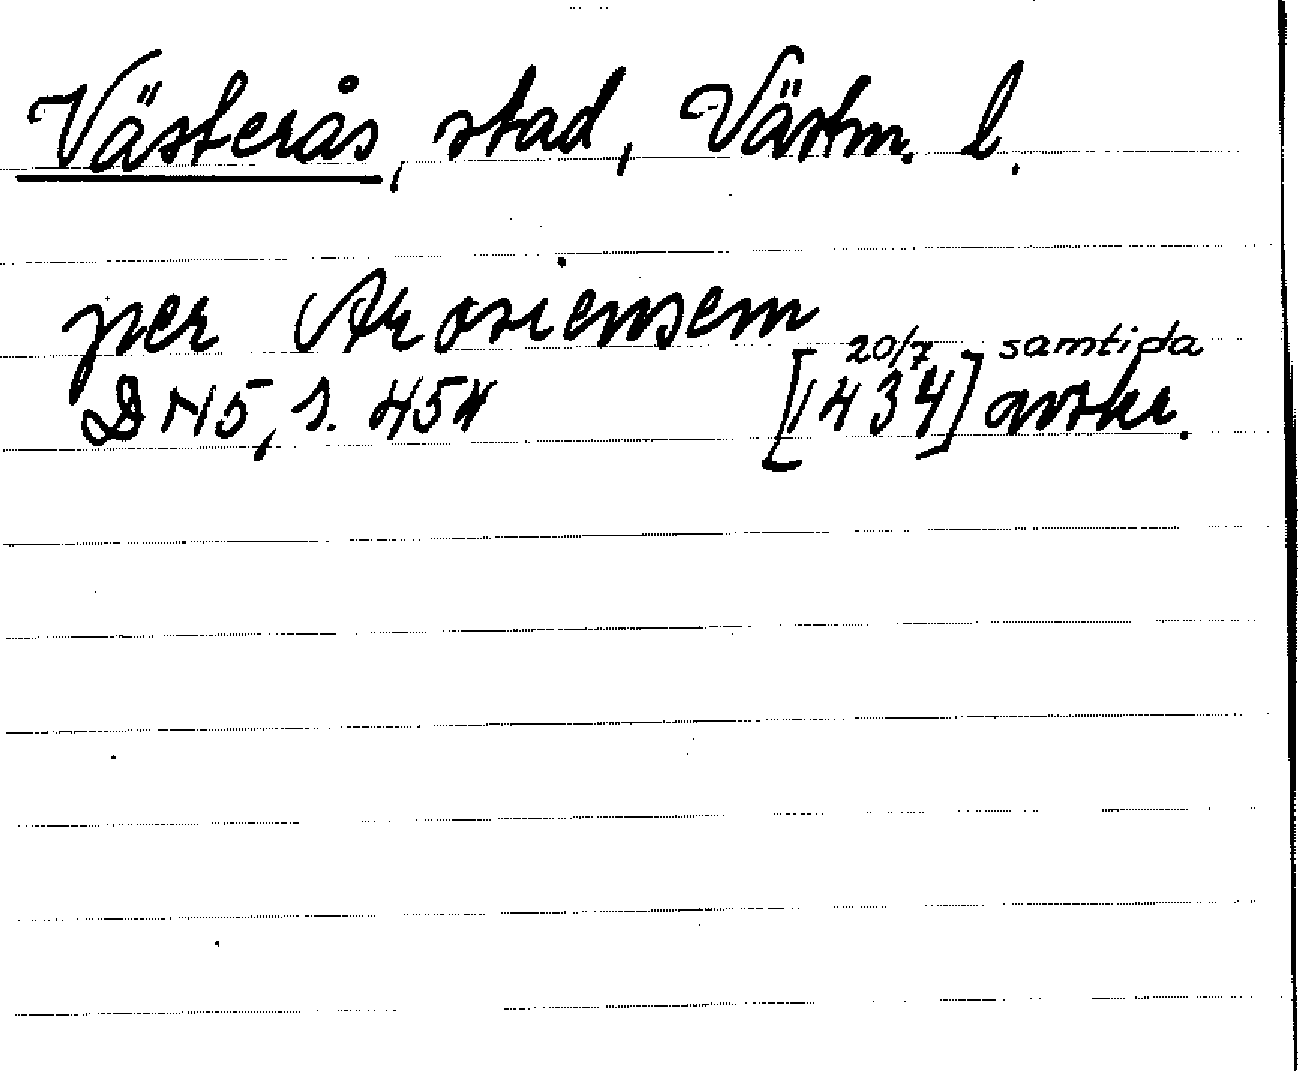 Västerås, stad, Västm. l.
per Arosiensem
20/7 samtida
DN 5, s. 454 [1434] avskr.